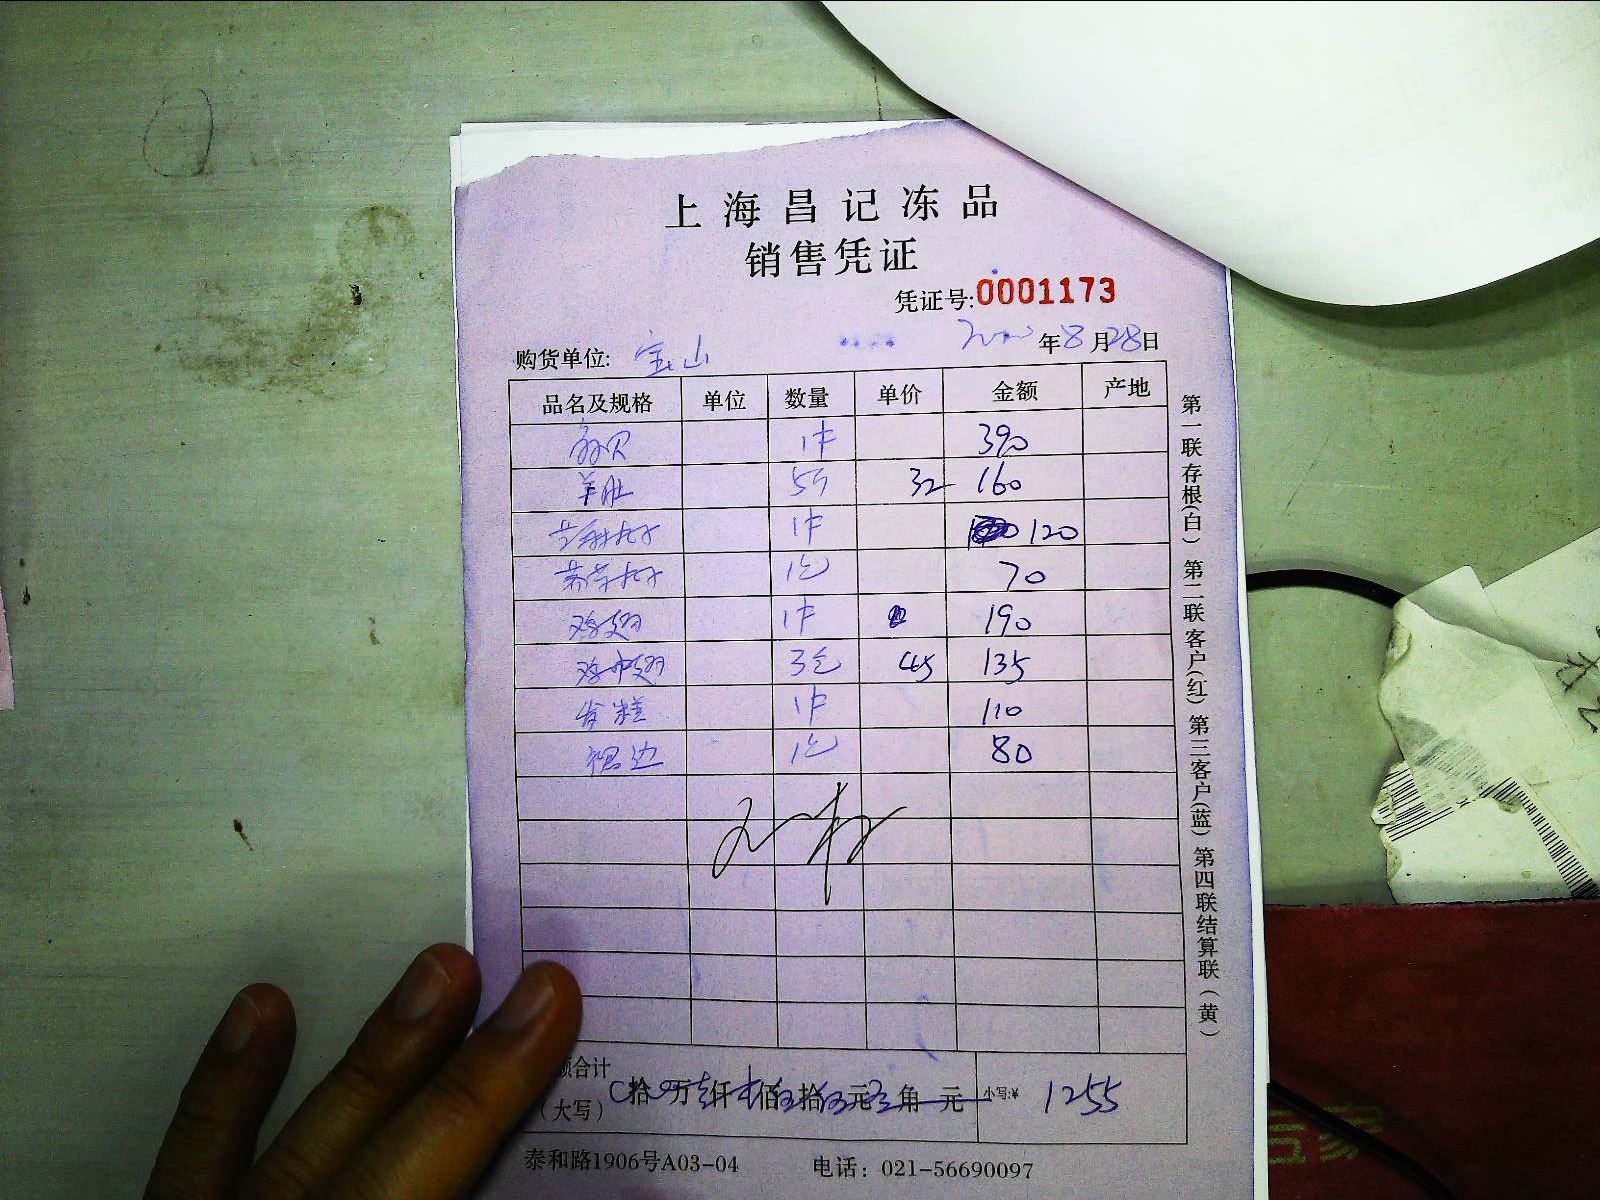 上海昌记冻品
销售凭证
凭证号:0001173
购货单位: 宝山 年8月28日
品名及规格 单位 数量 单价 金额 产地
1件 390
羊肚 5斤 32 160
1件 120
1包 70
鸡翅 1件 190
鸡中翅 3包 45 135
发糕 1件 110
裙边 1包 80
额合计
(大写) 拾 万 仟 佰 拾 元 角 元 小写:¥ 1255
泰和路1906号A03-04 电话: 021-56690097
第一联存根(白) 第二联客户(红) 第三客户(蓝) 第四联结算联(黄)